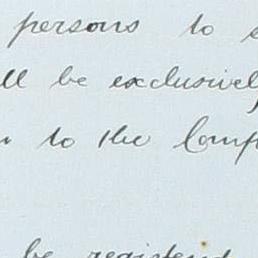 persons to
ll be exclusively
to the Comp
be registered